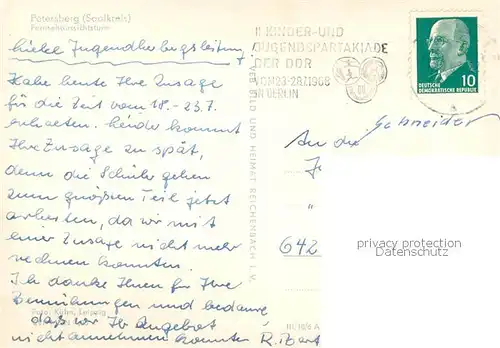 Petersberg (Saalkreis)
Fernsehumsetzturm
Liebe Jugendherbergsleitung,
Habe heute Ihre Zusage
für die Zeit vom 18.-23.7.
erhalten. Leider kommt
Ihre Zusage zu spät,
denn die Schüler gehen
zum größten Teil jetzt
arbeiten, da wir mit
einer Zusage nicht mehr
rechnen konnten.
Ich danke Ihnen für Ihre
Bemühungen und bedaure,
daß wir Ihr Angebot
nicht annehmen konnten
Foto: Kühn, Leipzig
VEB BILD UND HEIMAT REICHENBACH I. V.
II. KINDER-UND
JUGENDSPARTAKIADE
DER DDR
VOM 23.-28.7.1968
IN BERLIN
DEUTSCHE
DEMOKRATISCHE REPUBLIK
10
Schneider
An die
"
642
privacy protection
Datenschutz